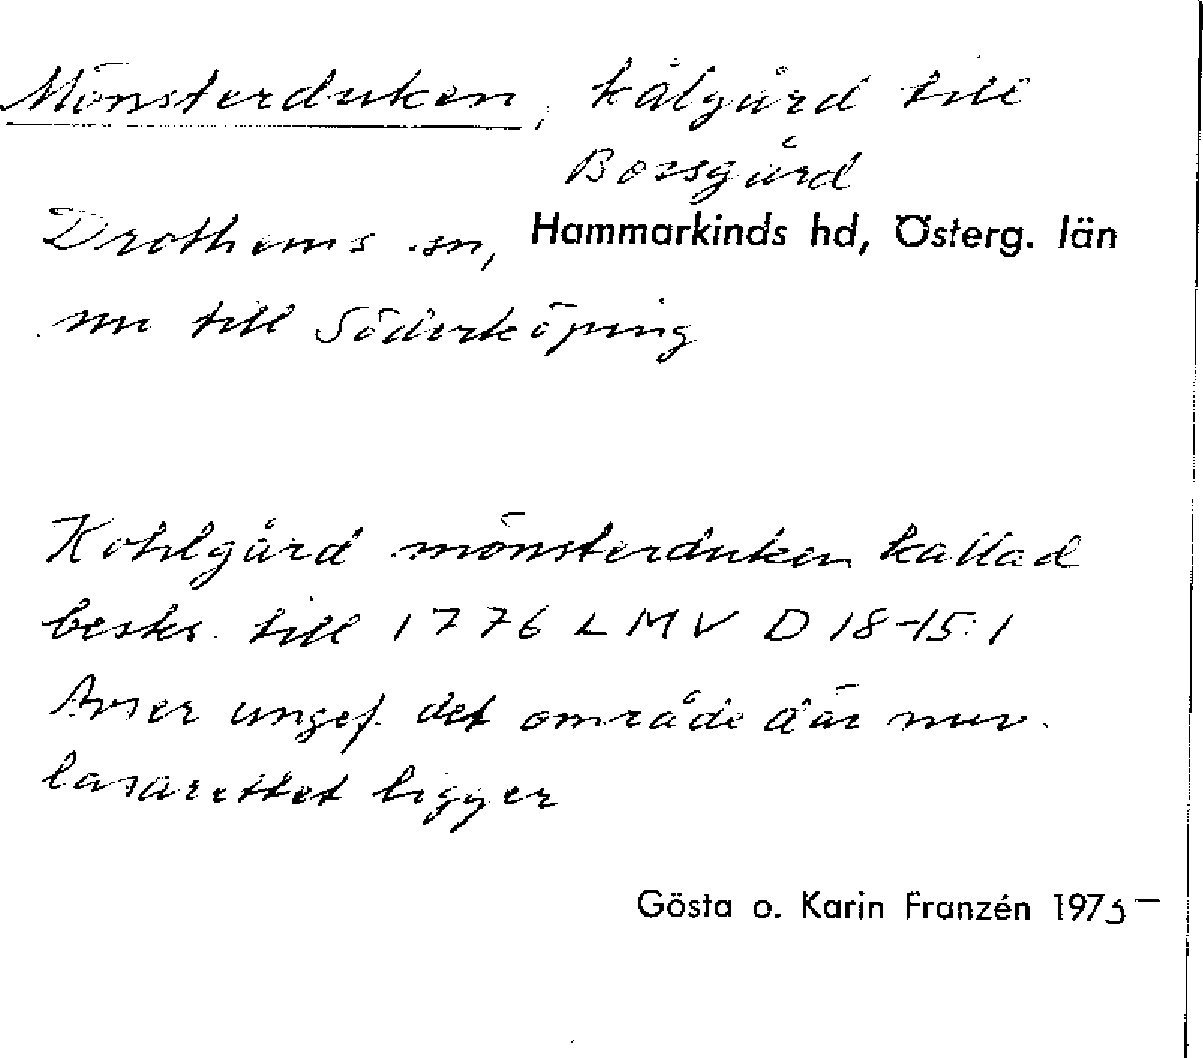 Mönsterduken, kålgård till
Borsgård
Drothems sn, Hammarkinds hd, Österg. län
nu till Söderköping
Kohlgård mönsterduken kallad
beskr. till 1776 LMV D 18-15:1
Avser ungef. det område där nuv.
lasarettet ligger
Gösta o. Karin Franzén 1975